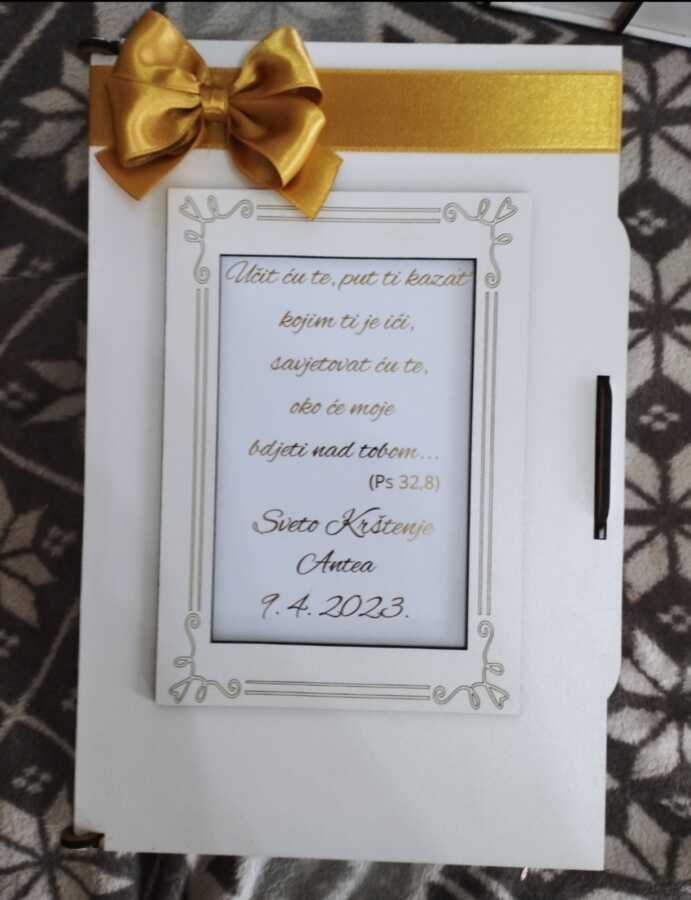 Učit ću te, put ti kazat
kojim ti je ići,
savjetovat ću te,
oko će moje
bdjeti nad tobom...
(Ps 32,8)
Sveto Krštenje
Antea
9. 4. 2023.